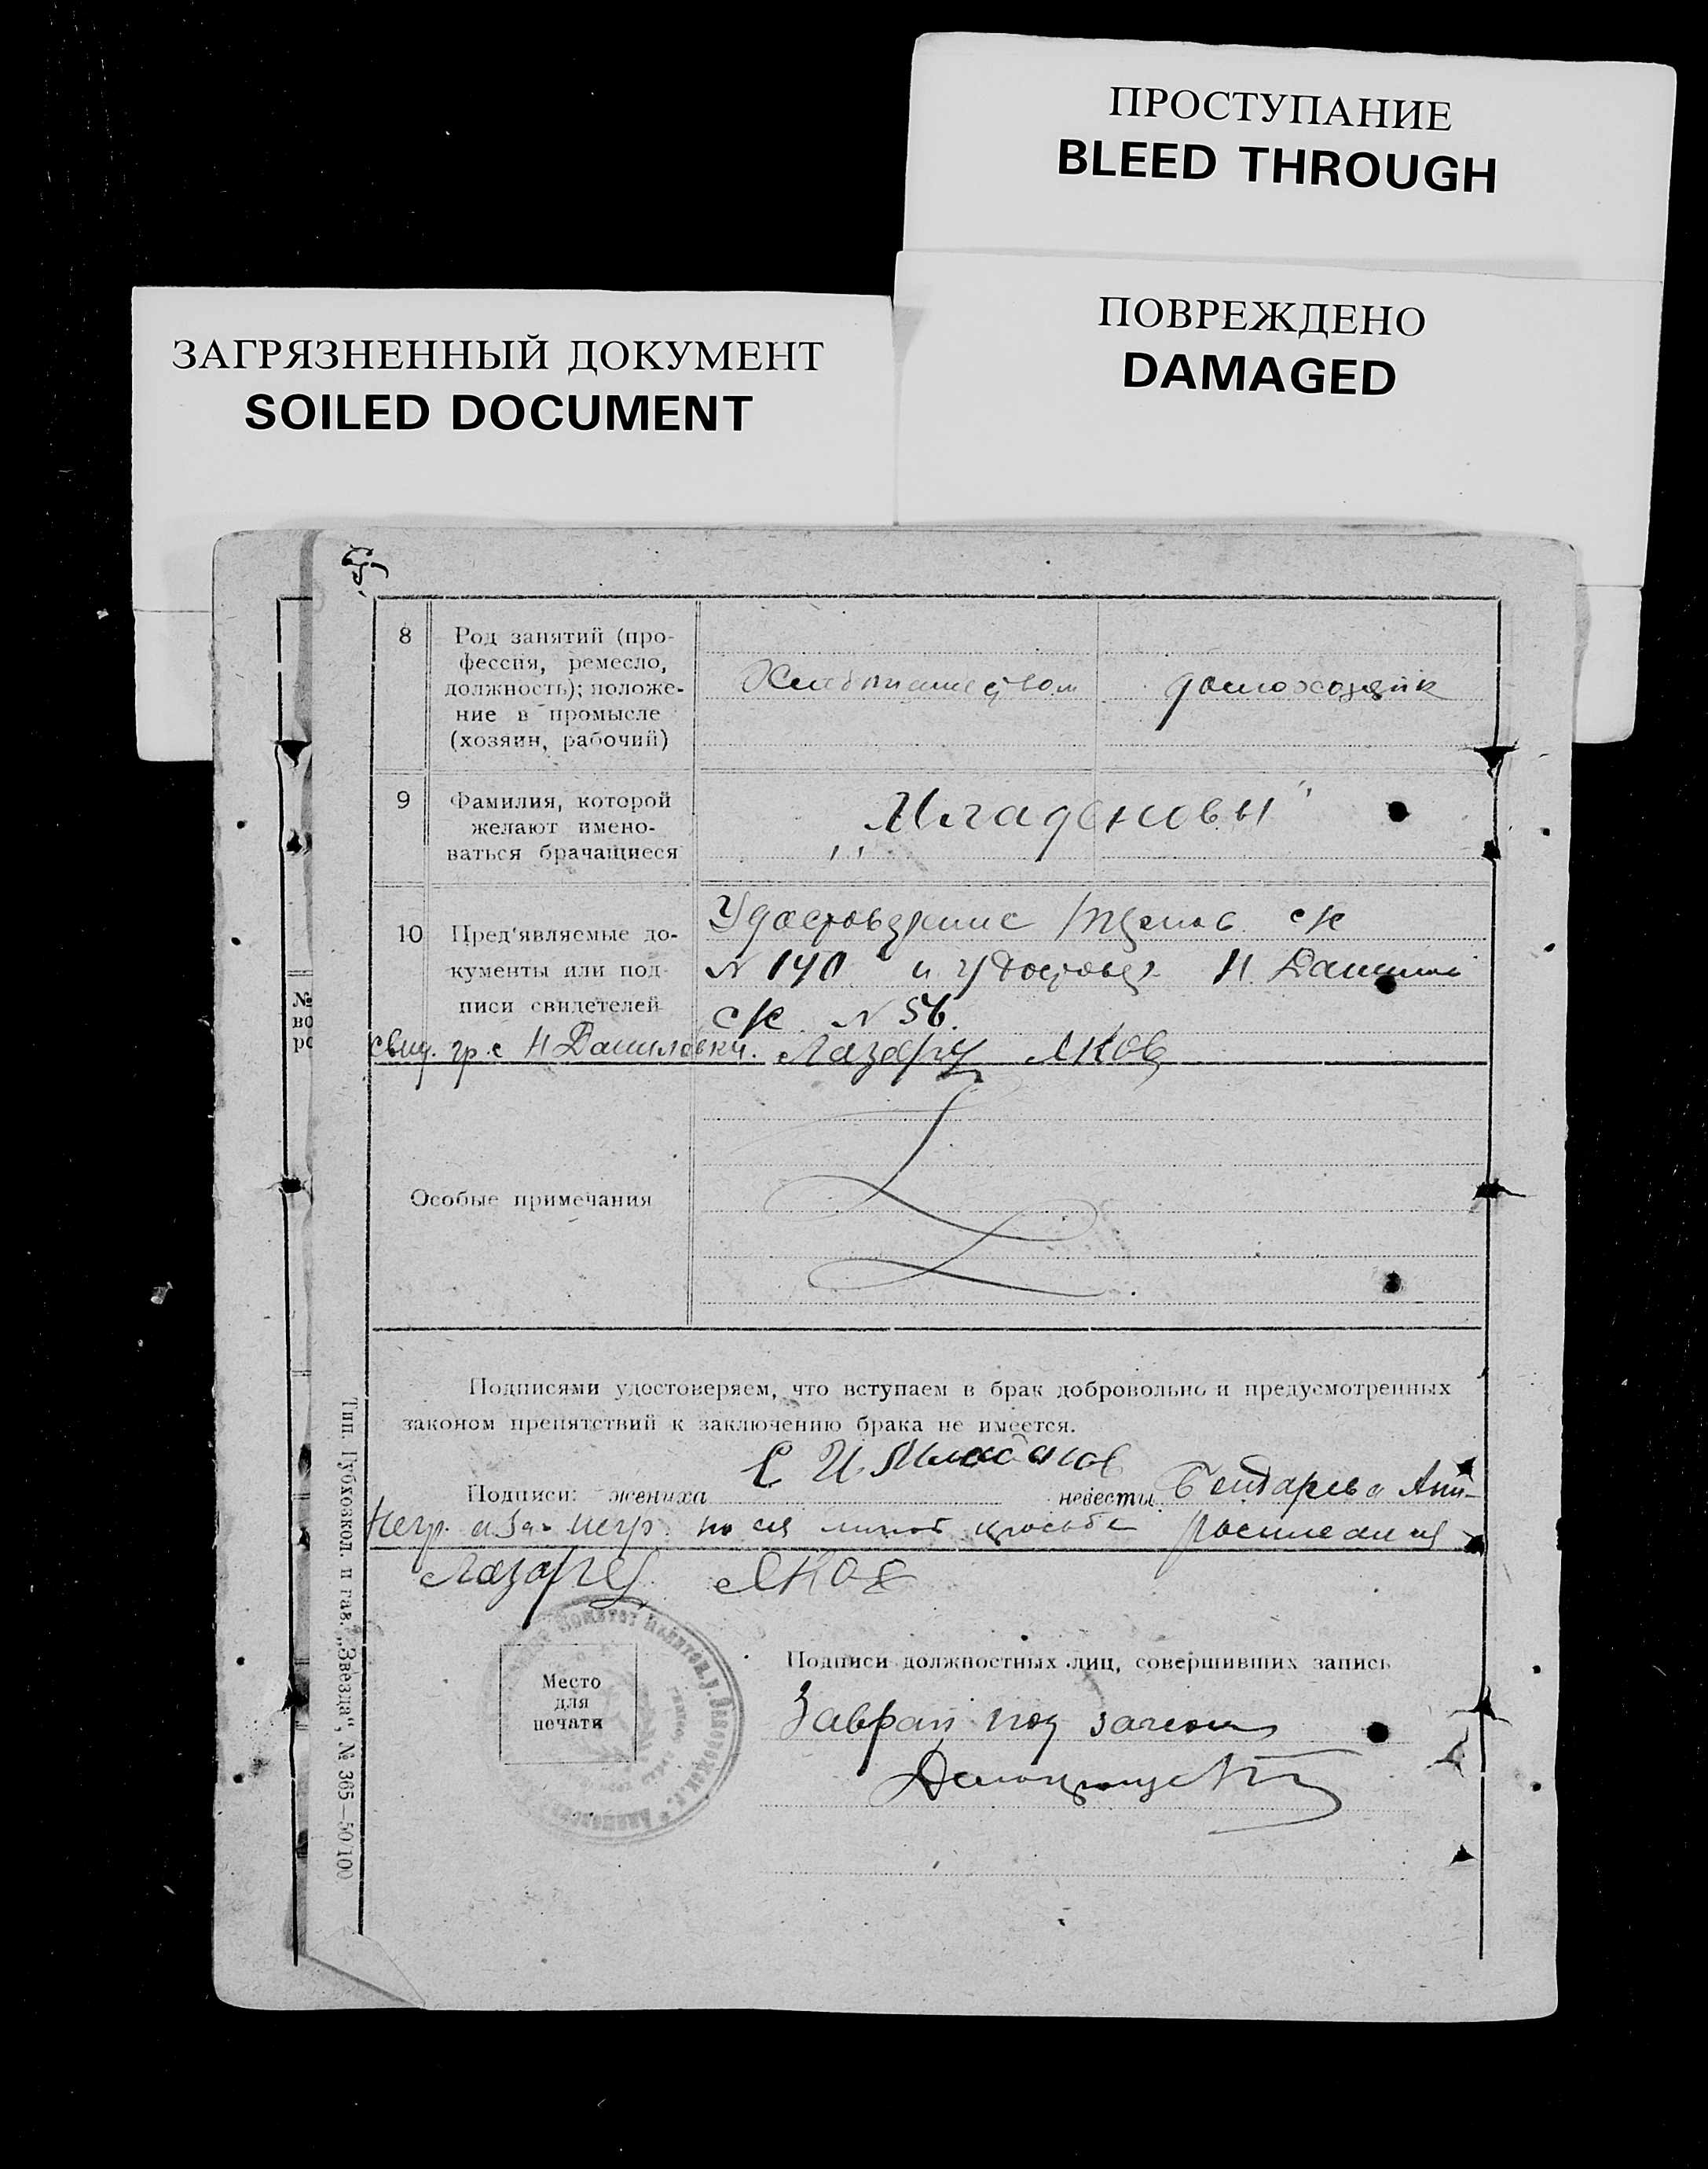 ПРОСТУПАНИЕ
BLEED THROUGH
ПОВРЕЖДЕНО
DAMAGED
ЗАГРЯЗНЕННЫЙ ДОКУМЕНТ
SOILED DOCUMENT
8
Род занятий (про-
фессия, ремесло,
должность); положе-
ние в промысле
(хозяин, рабочий)
Хлебопашеством
домохозяйк
9
Фамилия, которой
желают имено-
ваться брачащиеся
„Младеновы"
10
Пред'являемые до-
кументы или под-
писи свидетелей
Удостоверение с/с
N 140 и удостовер Н. Данил
с/с N 56.
свид. гр. с Н Даниловки. Лазарец Яков
№
во
ро
Особые примечания
Подписями удостоверяем, что вступаем в брак добровольно и предусмотренных
законом препятствий к заключению брака не имеется.
Подписи: жениха С И Младенов невесты Бондарева Анн-
негр. а за негр. по ея личной просьбе
Лазарец Яков
Место
для
печати
Подписи должностных лиц, совершивших запись
Заврай под
Тип. Губховкол. п газ. „Звезда", № 365—50/100